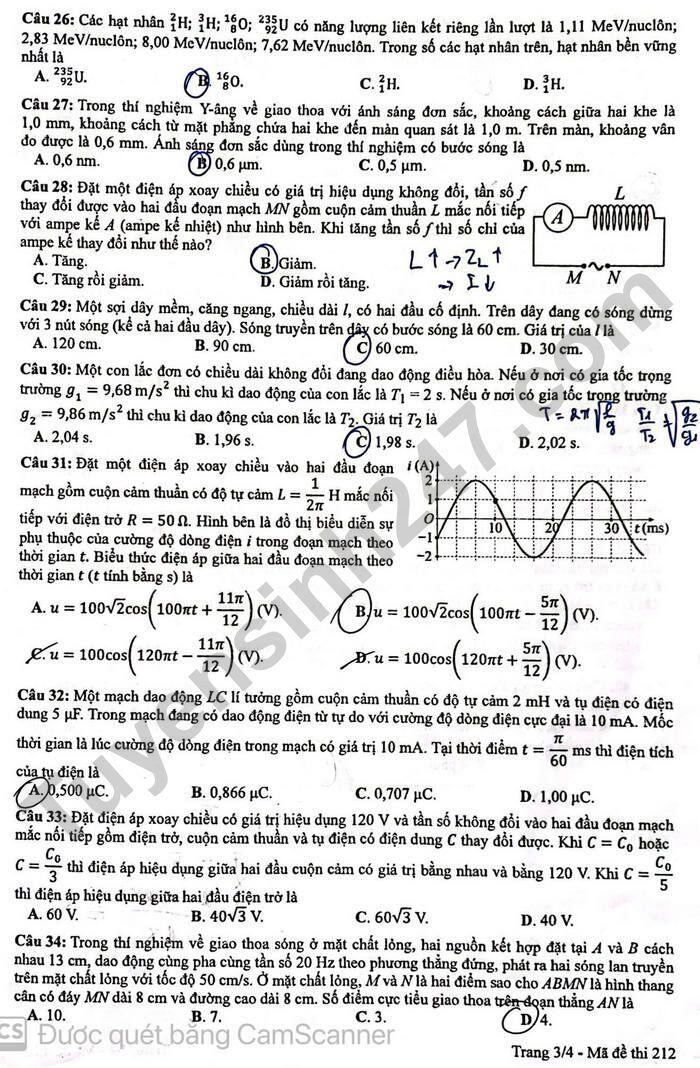 Câu 26: Các hạt nhân ²₁H; ³₁H; ¹⁶₈O; ²³⁵₉₂U có năng lượng liên kết riêng lần lượt là 1,11 MeV/nuclôn;
2,83 MeV/nuclôn; 8,00 MeV/nuclôn; 7,62 MeV/nuclôn. Trong số các hạt nhân trên, hạt nhân bền vững
nhất là
A. ²³⁵₉₂U. B. ¹⁶₈O. C. ²₁H. D. ³₁H.
Câu 27: Trong thí nghiệm Y-âng về giao thoa với ánh sáng đơn sắc, khoảng cách giữa hai khe là
1,0 mm, khoảng cách từ mặt phẳng chứa hai khe đến màn quan sát là 1,0 m. Trên màn, khoảng vân
đo được là 0,6 mm. Ánh sáng đơn sắc dùng trong thí nghiệm có bước sóng là
A. 0,6 nm. B. 0,6 μm. C. 0,5 μm. D. 0,5 nm.
Câu 28: Đặt một điện áp xoay chiều có giá trị hiệu dụng không đổi, tần số f
thay đổi được vào hai đầu đoạn mạch MN gồm cuộn cảm thuần L mắc nối tiếp
với ampe kế A (ampe kế nhiệt) như hình bên. Khi tăng tần số f thì số chỉ của
ampe kế thay đổi như thế nào?
A. Tăng. B. Giảm.
C. Tăng rồi giảm. D. Giảm rồi tăng.
L
A
M N
L↑ → Z_L ↑
→ I↓
Câu 29: Một sợi dây mềm, căng ngang, chiều dài l, có hai đầu cố định. Trên dây đang có sóng dừng
với 3 nút sóng (kể cả hai đầu dây). Sóng truyền trên dây có bước sóng là 60 cm. Giá trị của l là
A. 120 cm. B. 90 cm. C. 60 cm. D. 30 cm.
Câu 30: Một con lắc đơn có chiều dài không đổi đang dao động điều hòa. Nếu ở nơi có gia tốc trọng
trường g₁ = 9,68 m/s² thì chu kì dao động của con lắc là T₁ = 2 s. Nếu ở nơi có gia tốc trọng trường
g₂ = 9,86 m/s² thì chu kì dao động của con lắc là T₂. Giá trị T₂ là
T = 2π√(l/g) T₁/T₂ = √(g₂/g₁)
A. 2,04 s. B. 1,96 s. C. 1,98 s. D. 2,02 s.
Câu 31: Đặt một điện áp xoay chiều vào hai đầu đoạn
mạch gồm cuộn cảm thuần có độ tự cảm L = 1/2π H mắc nối
tiếp với điện trở R = 50 Ω. Hình bên là đồ thị biểu diễn sự
phụ thuộc của cường độ dòng điện i trong đoạn mạch theo
thời gian t. Biểu thức điện áp giữa hai đầu đoạn mạch theo
thời gian t (t tính bằng s) là
i (A)
2
1
O 10 20 30 t (ms)
−1
−2
A. u = 100√2cos(100πt + 11π/12) (V). B. u = 100√2cos(100πt − 5π/12) (V).
C. u = 100cos(120πt − 11π/12) (V). D. u = 100cos(120πt + 5π/12) (V).
Câu 32: Một mạch dao động LC lí tưởng gồm cuộn cảm thuần có độ tự cảm 2 mH và tụ điện có điện
dung 5 μF. Trong mạch đang có dao động điện từ tự do với cường độ dòng điện cực đại là 10 mA. Mốc
thời gian là lúc cường độ dòng điện trong mạch có giá trị 10 mA. Tại thời điểm t = π/60 ms thì điện tích
của tụ điện là
A. 0,500 μC. B. 0,866 μC. C. 0,707 μC. D. 1,00 μC.
Câu 33: Đặt điện áp xoay chiều có giá trị hiệu dụng 120 V và tần số không đổi vào hai đầu đoạn mạch
mắc nối tiếp gồm điện trở, cuộn cảm thuần và tụ điện có điện dung C thay đổi được. Khi C = C₀ hoặc
C = C₀/3 thì điện áp hiệu dụng giữa hai đầu cuộn cảm có giá trị bằng nhau và bằng 120 V. Khi C = C₀/5
thì điện áp hiệu dụng giữa hai đầu điện trở là
A. 60 V. B. 40√3 V. C. 60√3 V. D. 40 V.
Câu 34: Trong thí nghiệm về giao thoa sóng ở mặt chất lỏng, hai nguồn kết hợp đặt tại A và B cách
nhau 13 cm, dao động cùng pha cùng tần số 20 Hz theo phương thẳng đứng, phát ra hai sóng lan truyền
trên mặt chất lỏng với tốc độ 50 cm/s. Ở mặt chất lỏng, M và N là hai điểm sao cho ABMN là hình thang
cân có đáy MN dài 8 cm và đường cao dài 8 cm. Số điểm cực tiểu giao thoa trên đoạn thẳng AN là
A. 10. B. 7. C. 3. D. 4.
CS Được quét bằng CamScanner
Trang 3/4 - Mã đề thi 212
Tuyensinh247.com